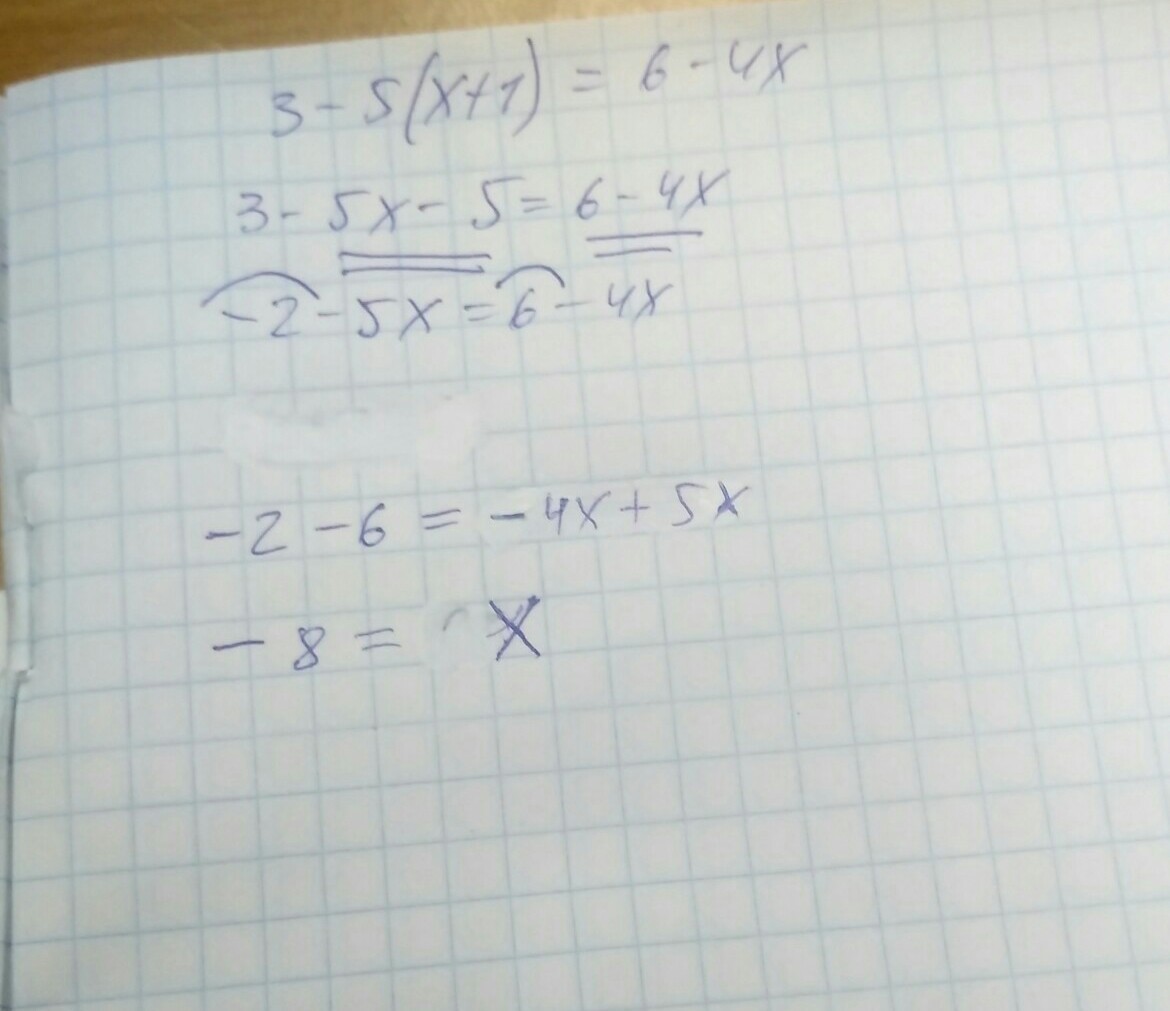 3 - 5(x+1) = 6 - 4x
3 - 5x - 5 = 6 - 4x
-2 - 5x = 6 - 4x
-2 - 6 = -4x + 5x
-8 = x